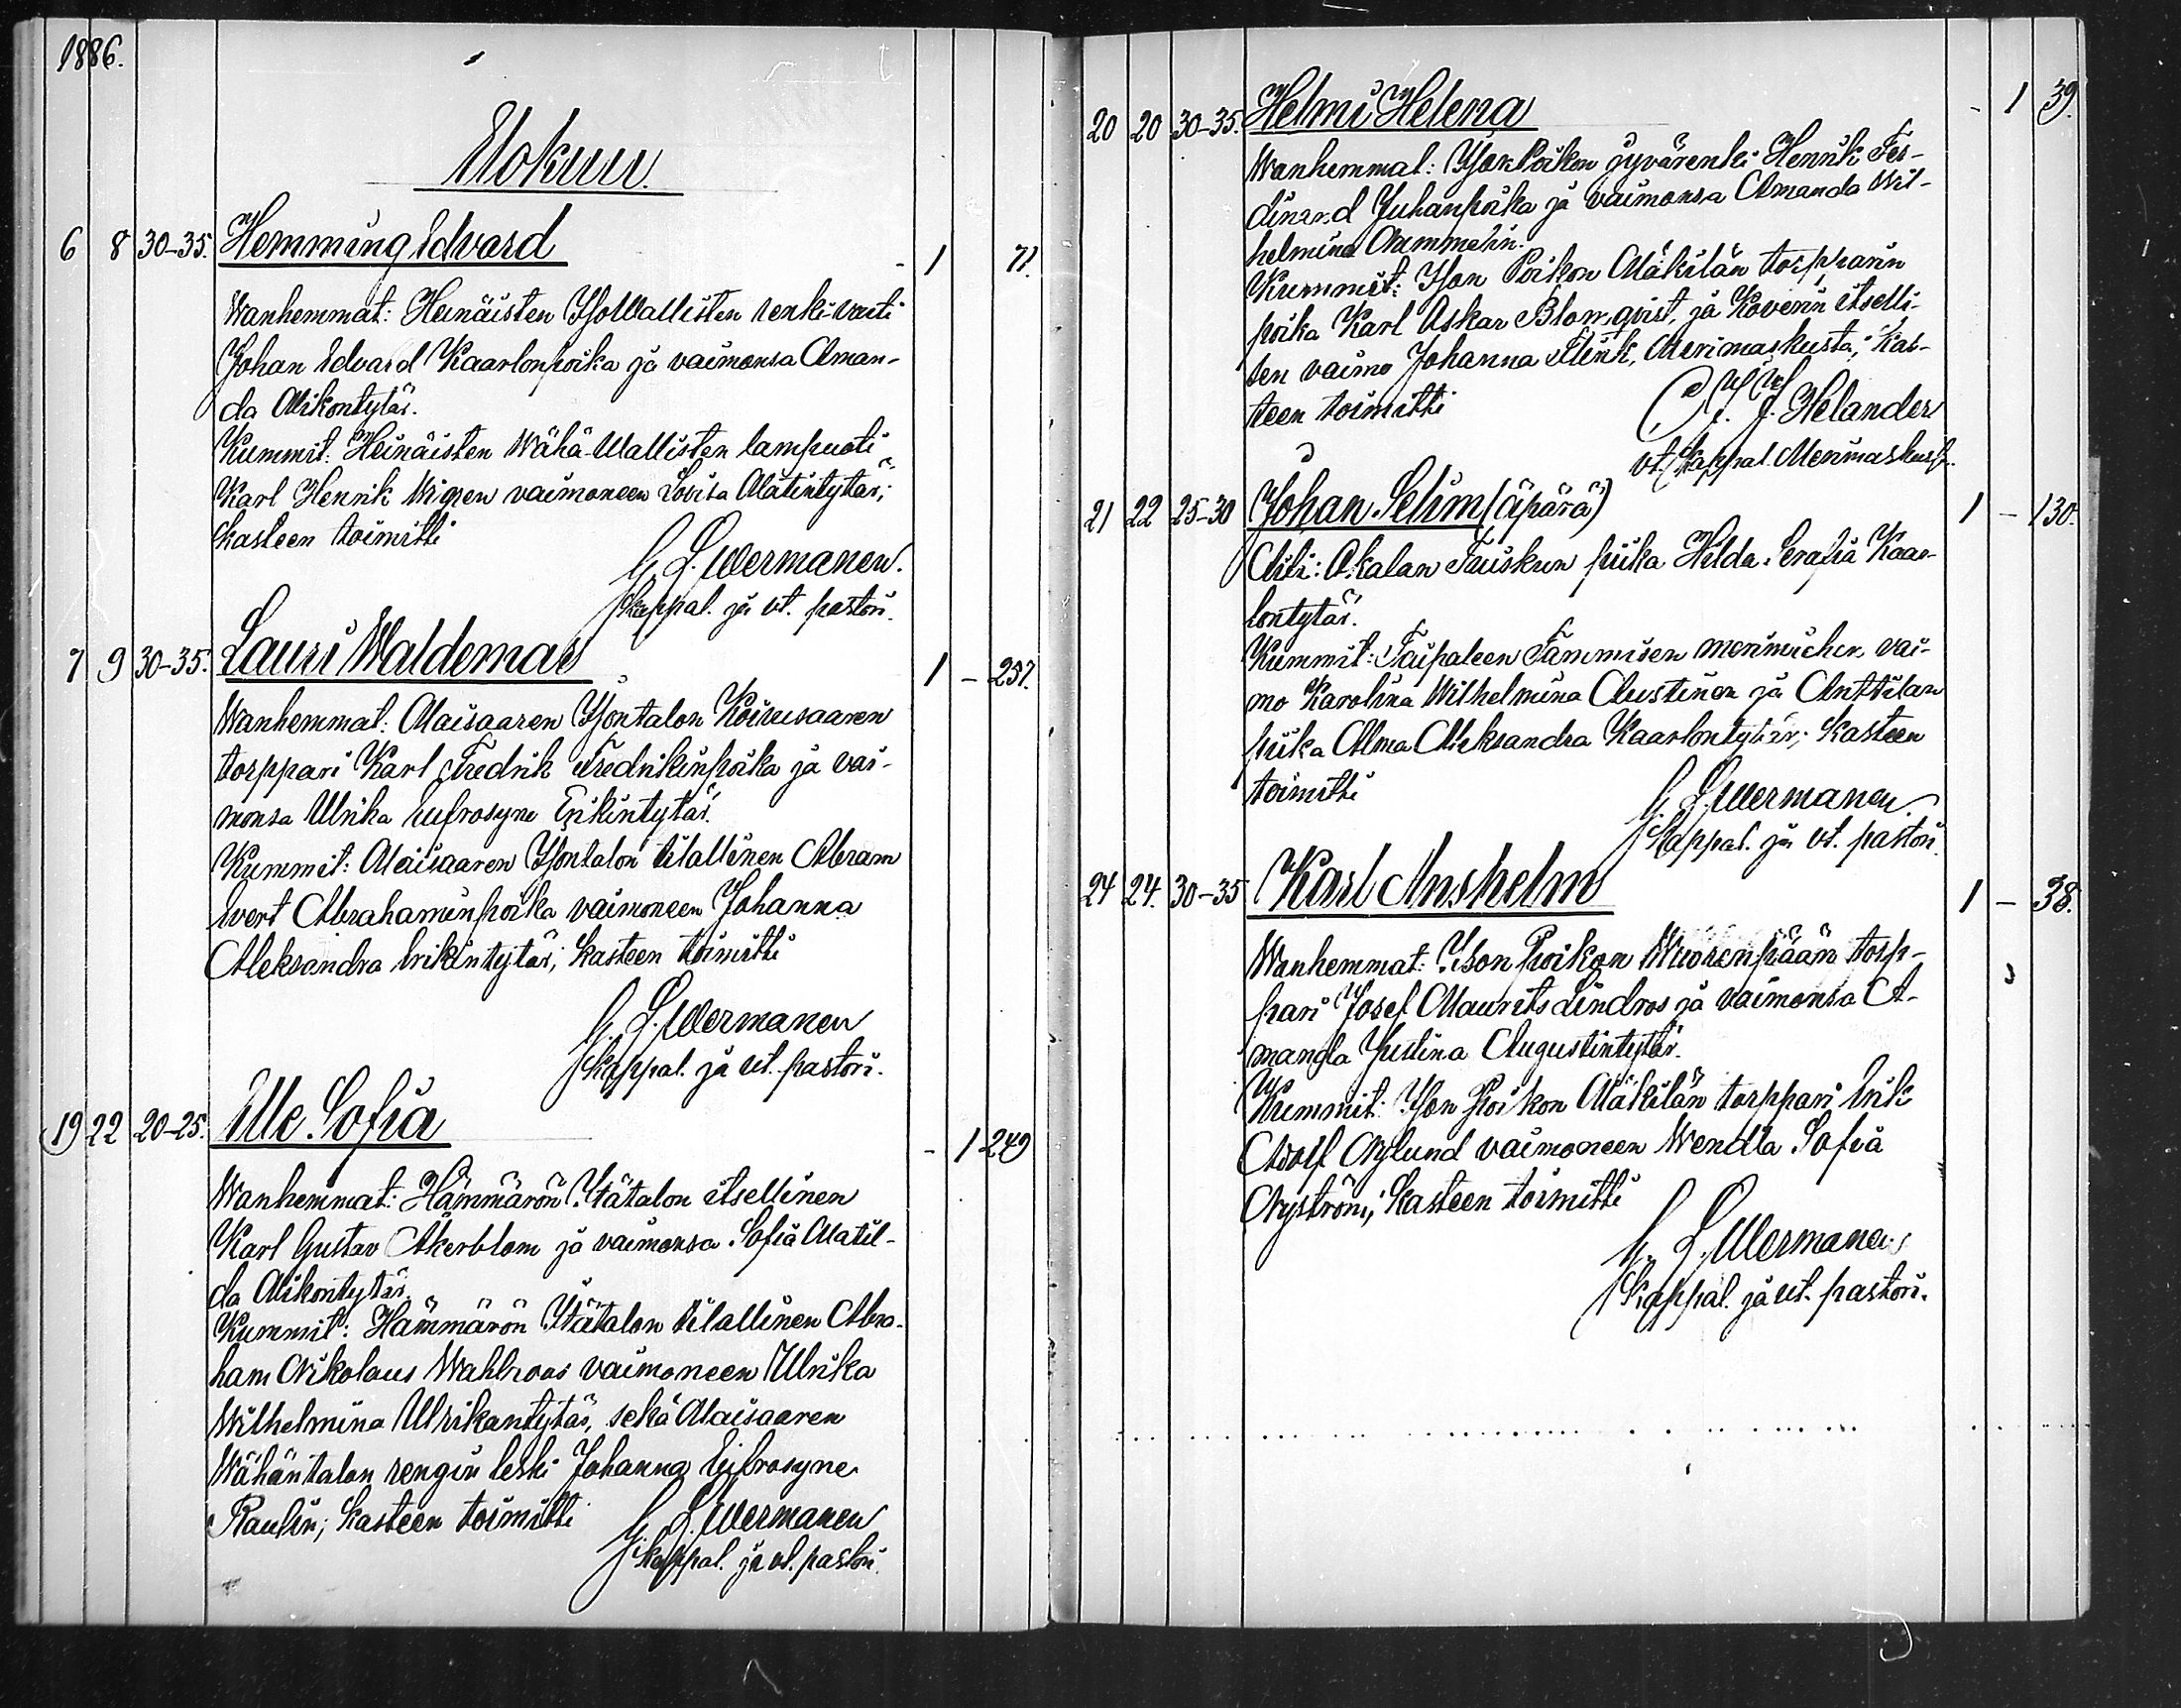 1886.
Elokuu.
6 8 30-35. Hemming Edvard - 1 71.
Wanhemmat: Heinäisten IsoWallisten renki-vouti
Johan Edvard Kaarlonpoika ja vaimonsa Aman-
da Mikontytär.
Kummit: Heinäisten Wähä-Wallisten lampuoti
Karl Henrik Wigren vaimoneen Lovisa Matintytär;
kasteen toimitti
G. L. Wermanen.
Kappal. ja vt. pastori.
7 9 30-35. Lauri Waldemar 1 - 257.
Wanhemmat: Maisaaren Isontalon Koivusaaren
torppari Karl Fredrik Fredrikinpoika ja vai-
monsa Ulrika Eufrosyne Erikintytär.
Kummit: Maisaaren Isontalon tilallinen Abram
Evert Abrahaminpoika vaimoneen Johanna
Aleksandra Erikintytär; kasteen toimitti
G. L. Wermanen
Kappal. ja vt. pastori.
19 22 20-25. Elle Sofia - 1 249
Wanhemmat: Hämmärön Itätalon itsellinen
Karl Gustav Åkerblom ja vaimonsa Sofia Matil-
da Mikontytär.
Kummit: Hämmärön Itätalon tilallinen Abra-
ham Nikolaus Wahlroos vaimoneen Ulrika
Wilhelmina Ulrikantytär, sekä Maisaaren
Wähäntalon rengin leski Johanna Eufrosyne
Raulin; kasteen toimitti
G. L. Wermanen
Kappal. ja vt. pastori.
20 20 30-35. Helmi Helena - 1 39.
Wanhemmat: Ison Poikon jyvärenki Henrik Fer-
dinand Juhanpoika ja vaimonsa Amanda Wil-
helmina Nummelin.
Kummit: Ison Poikon Mäkilän torpparin
poika Karl Oskar Blomqvist, ja Koverin itselli-
sen vaimo Johanna Flink, Merimaskusta; kas-
teen toimitti
J. Helander
vt. Kappal. Merimaskussa.
21 22 25-30 Johan Selim (äpärä) 1 - 130.
Äiti: Askalan piika Hilda Serafia Kaar-
lontytär.
Kummit: Taipaleen Tammisen merimiehen vai-
mo Karolina Wilhelmina Austinen ja Anttilan
piika Alma Aleksandra Kaarlontytär; kasteen
toimitti
G. L. Wermanen
Kappal. ja vt. pastori.
24 24. 30-35 Karl Anshelm 1 - 38.
Wanhemmat: Ison Poikon Wuorenpään torp-
pari Josef Maurits Lindros ja vaimonsa A-
manda Justina Augustintytär.
Kummit: Ison Poikon Mäkilän torppari Erik
Adolf Nylund vaimoneen Wendla Sofia
Nyström; kasteen toimitti
G. L. Wermanen
Kappal. ja vt. pastori.